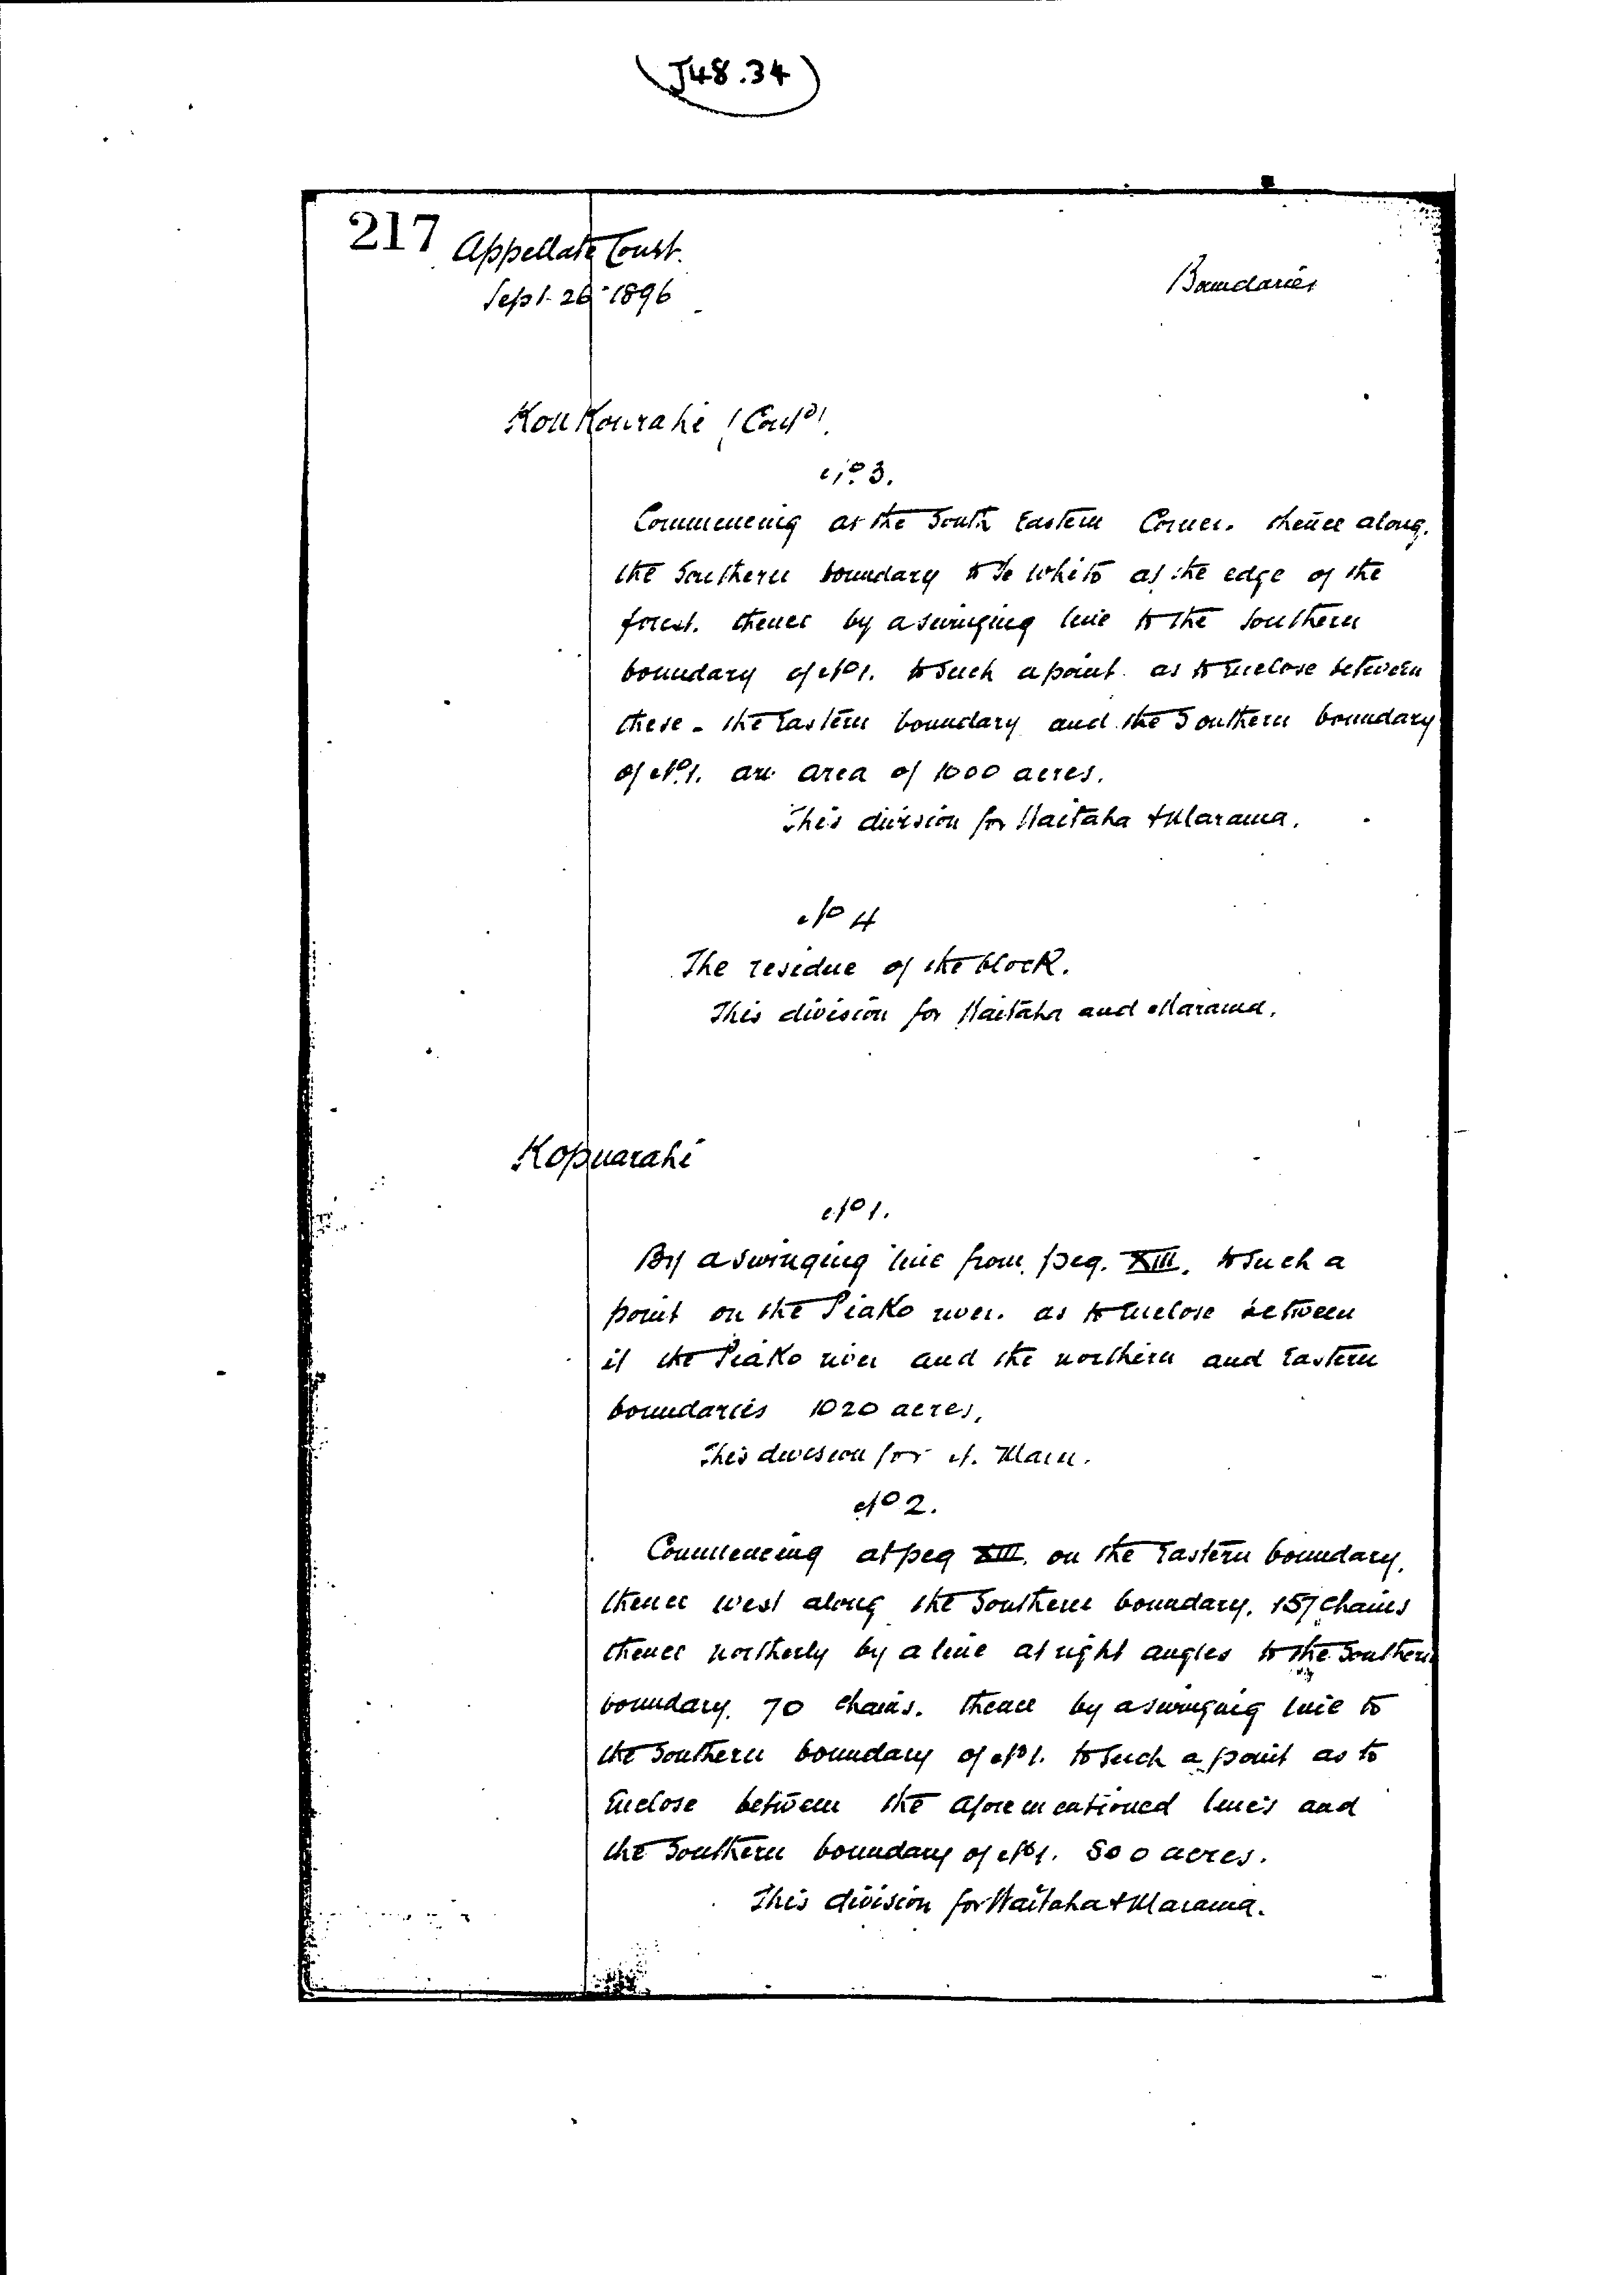 (J48.34)
217 Appellate Court.
Sept. 26 1896
Boundaries
Koukourahi (Contd).
No 3.
Commencing at the South Eastern Corner. thence along
the Southern boundary to Te Whito at the edge of the
forest. thence by a swinging line to the Southern
boundary of No 1. to such a point as to Enclose between
these - the Eastern boundary and the Southern boundary
of No 1. an area of 1000 acres.
This division for Waitaha & Marama.
No 4
The residue of the block.
This division for Waitaha and Marama.
Kopuarahi
No 1.
By a swinging line from peg. XIII. to such a
point on the Piako river. as to Enclose between
it the Piako river and the northern and Eastern
boundaries 1020 acres.
This division for N. Maru.
No 2.
Commencing at peg XIII. on the Eastern boundary.
thence west along the Southern boundary. 157 chains
thence northerly by a line at right angles to the Southern
boundary. 70 chains. thence by a swinging line to
the Southern boundary of No 1. to such a point as to
Enclose between the aforementioned lines and
the Southern boundary of No 1. 800 acres.
This division for Waitaha & Marama.